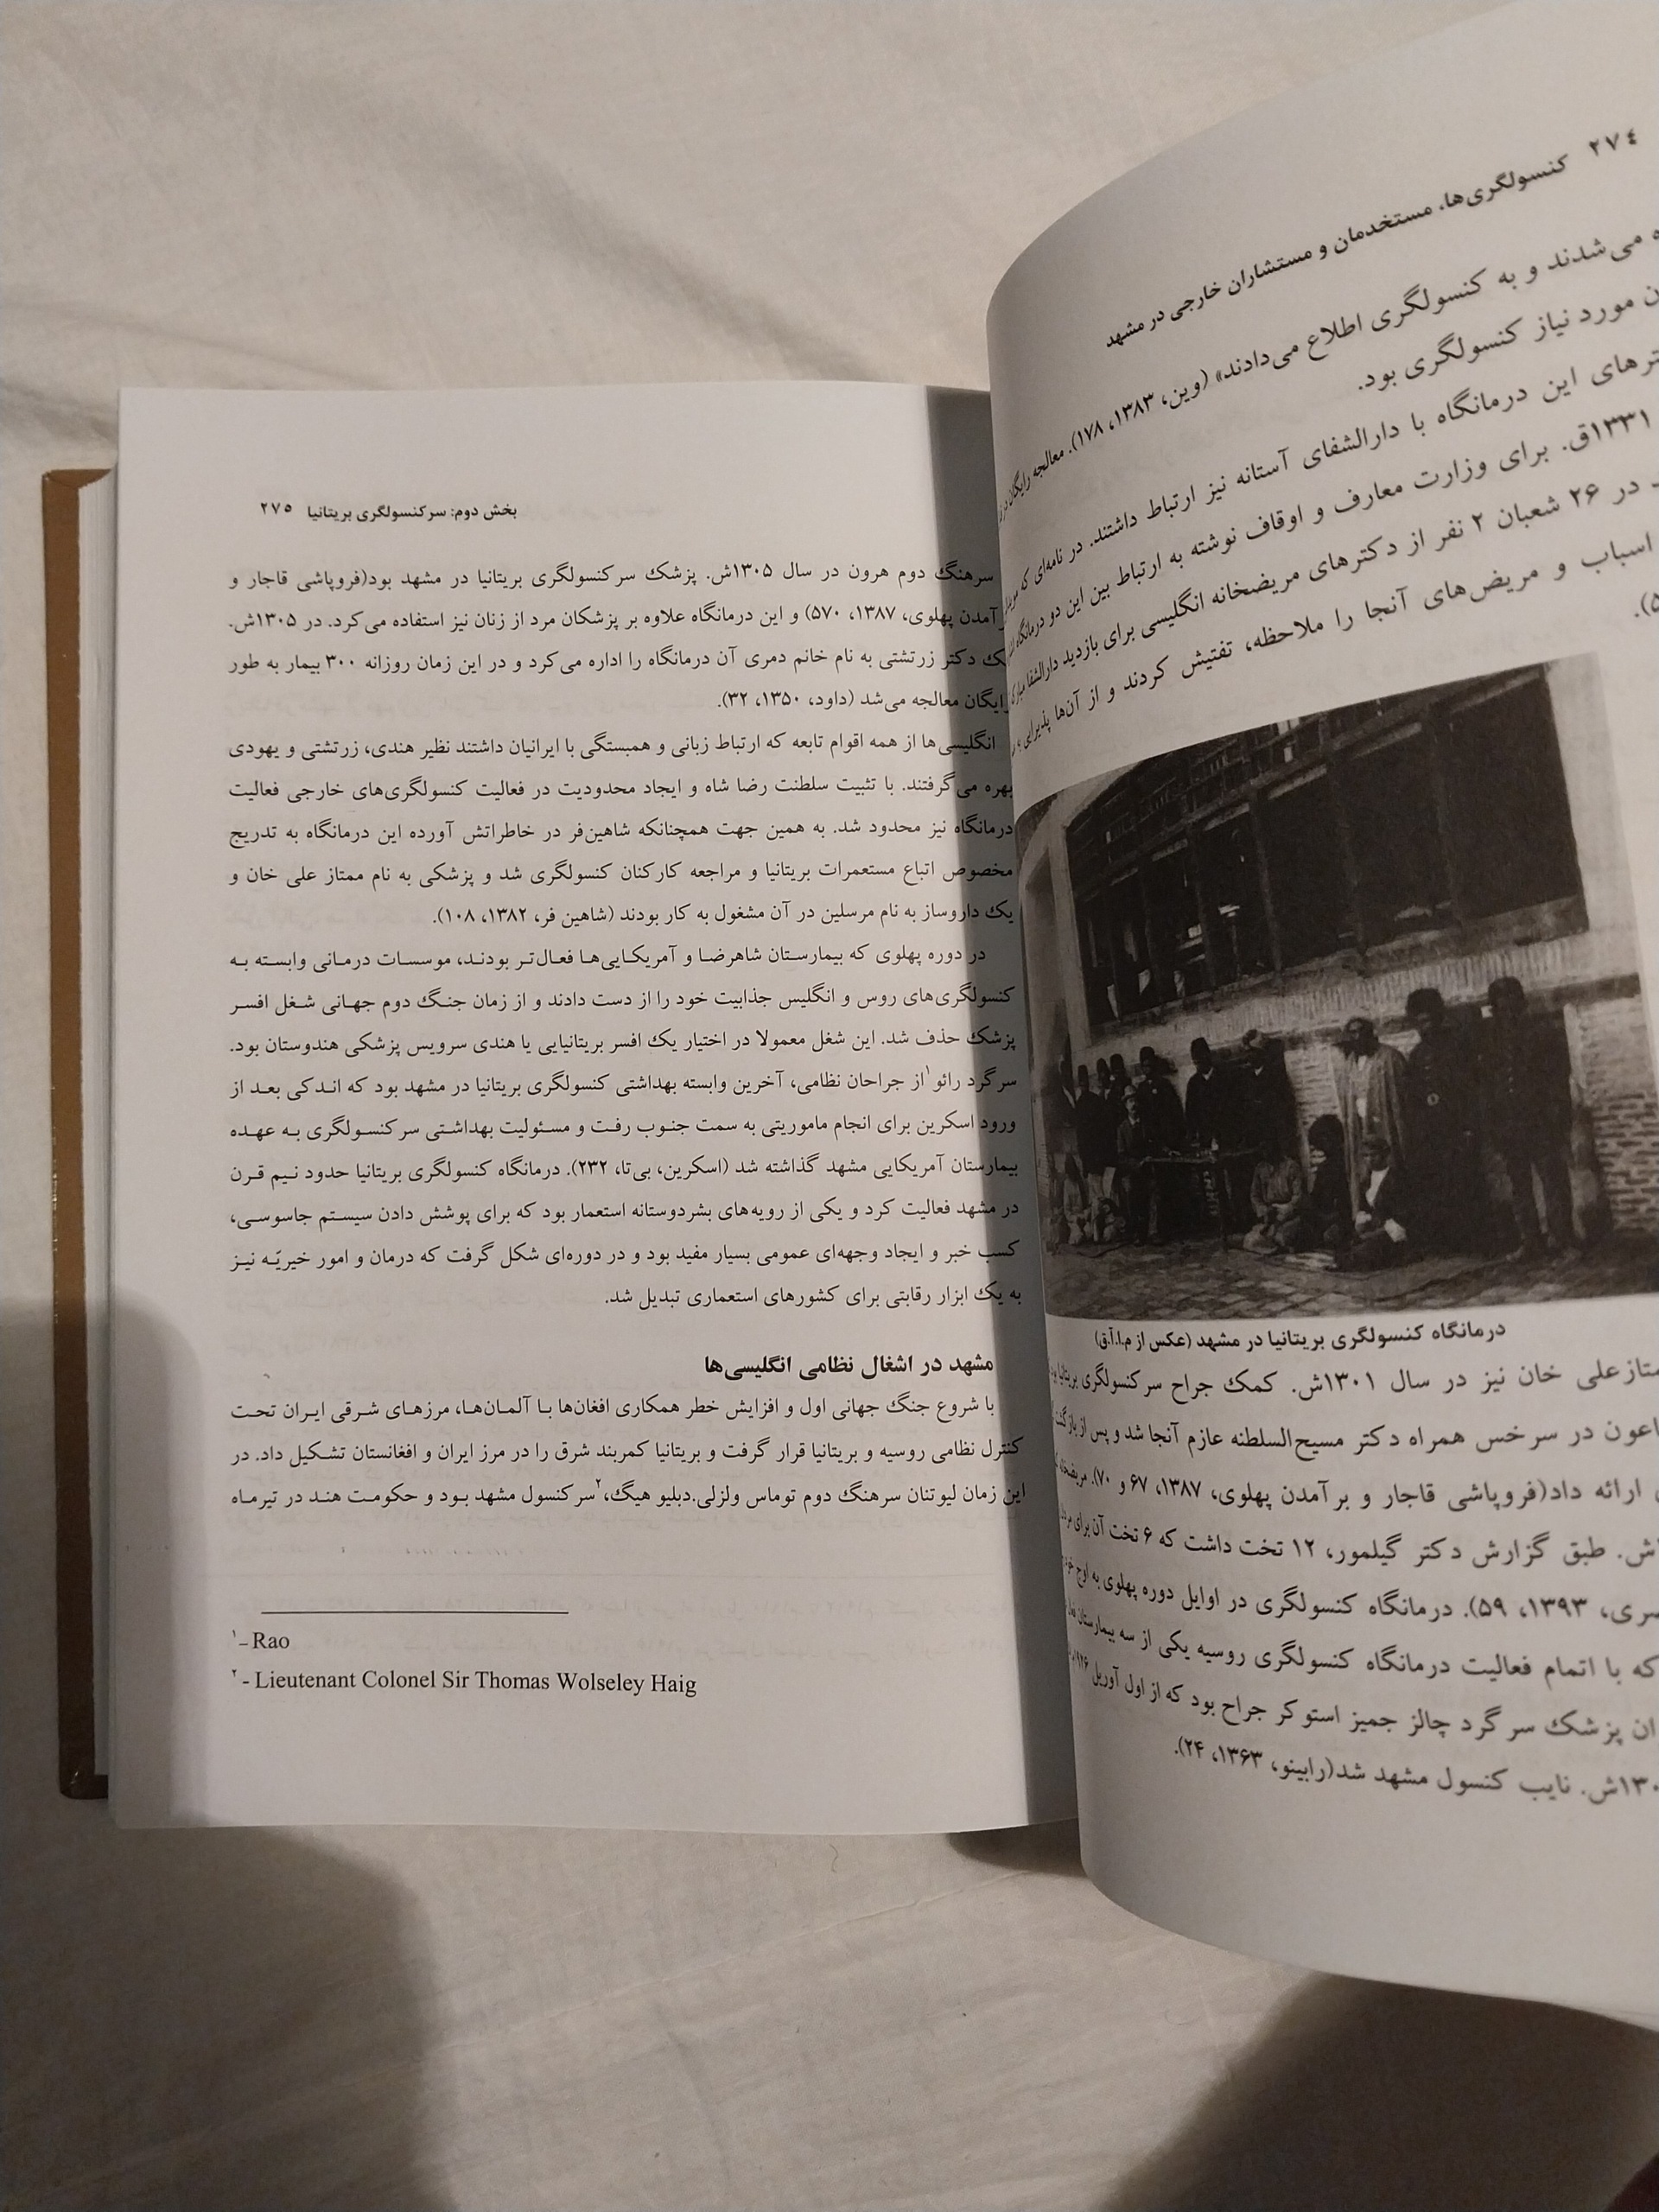 ٢٧٤ کنسولگری‌ها، مستخدمان و مستشاران خارجی در مشهد
می‌شدند و به کنسولگری اطلاع می‌دادند» (وین، ۱۳۸۳، ۱۷۸). معالجه رایگان
مورد نیاز کنسولگری بود.
این درمانگاه با دارالشفای آستانه نیز ارتباط داشتند. در نامه‌ای که
۱۳۳۱ق. برای وزارت معارف و اوقاف نوشته به ارتباط بین این دو درمانگاه
در ۲۶ شعبان ۲ نفر از دکترهای مریضخانه انگلیسی برای بازدید دارالشفا
اسباب و مریض‌های آنجا را ملاحظه، تفتیش کردند و از آن‌ها پذیرایی
درمانگاه کنسولگری بریتانیا در مشهد (عکس از م.ا.آ.ق)
خان نیز در سال ۱۳۰۱ش. کمک جراح سرکنسولگری بریتانیا
در سرخس همراه دکتر مسیح‌السلطنه عازم آنجا شد و پس از بازگشت
ارائه داد(فروپاشی قاجار و برآمدن پهلوی، ۱۳۸۷، ۶۷ و ۷۰).
طبق گزارش دکتر گیلمور، ۱۲ تخت داشت که ۶ تخت آن برای
۱۳۹۳، ۵۹). درمانگاه کنسولگری در اوایل دوره پهلوی به اوج
که با اتمام فعالیت درمانگاه کنسولگری روسیه یکی از سه بیمارستان
پزشک سرگرد چالز جمیز استوکر جراح بود که از اول آوریل
نایب کنسول مشهد شد(رابینو، ۱۳۶۳، ۲۴).
بخش دوم: سرکنسولگری بریتانیا ٢٧٥
سرهنگ دوم هرون در سال ۱۳۰۵ش. پزشک سرکنسولگری بریتانیا در مشهد بود(فروپاشی قاجار و
آمدن پهلوی، ۱۳۸۷، ۵۷۰) و این درمانگاه علاوه بر پزشکان مرد از زنان نیز استفاده می‌کرد. در ۱۳۰۵ش.
یک دکتر زرتشتی به نام خانم دمری آن درمانگاه را اداره می‌کرد و در این زمان روزانه ۳۰۰ بیمار به طور
رایگان معالجه می‌شد (داود، ۱۳۵۰، ۳۲).
انگلیسی‌ها از همه اقوام تابعه که ارتباط زبانی و همبستگی با ایرانیان داشتند نظیر هندی، زرتشتی و یهودی
بهره می‌گرفتند. با تثبیت سلطنت رضا شاه و ایجاد محدودیت در فعالیت کنسولگری‌های خارجی فعالیت
درمانگاه نیز محدود شد. به همین جهت همچنانکه شاهین‌فر در خاطراتش آورده این درمانگاه به تدریج
مخصوص اتباع مستعمرات بریتانیا و مراجعه کارکنان کنسولگری شد و پزشکی به نام ممتاز علی خان و
یک داروساز به نام مرسلین در آن مشغول به کار بودند (شاهین فر، ۱۳۸۲، ۱۰۸).
در دوره پهلوی که بیمارستان شاهرضا و آمریکایی‌ها فعال‌تر بودند، موسسات درمانی وابسته به
کنسولگری‌های روس و انگلیس جذابیت خود را از دست دادند و از زمان جنگ دوم جهانی شغل افسر
پزشک حذف شد. این شغل معمولا در اختیار یک افسر بریتانیایی یا هندی سرویس پزشکی هندوستان بود.
سرگرد رائو۱ از جراحان نظامی، آخرین وابسته بهداشتی کنسولگری بریتانیا در مشهد بود که اندکی بعد از
ورود اسکرین برای انجام ماموریتی به سمت جنوب رفت و مسئولیت بهداشتی سرکنسولگری به عهده
بیمارستان آمریکایی مشهد گذاشته شد (اسکرین، بی‌تا، ۲۳۲). درمانگاه کنسولگری بریتانیا حدود نیم قرن
در مشهد فعالیت کرد و یکی از رویه‌های بشردوستانه استعمار بود که برای پوشش دادن سیستم جاسوسی،
کسب خبر و ایجاد وجهه‌ای عمومی بسیار مفید بود و در دوره‌ای شکل گرفت که درمان و امور خیریّه نیز
به یک ابزار رقابتی برای کشورهای استعماری تبدیل شد.
مشهد در اشغال نظامی انگلیسی‌ها
با شروع جنگ جهانی اول و افزایش خطر همکاری افغان‌ها با آلمان‌ها، مرزهای شرقی ایران تحت
کنترل نظامی روسیه و بریتانیا قرار گرفت و بریتانیا کمربند شرق را در مرز ایران و افغانستان تشکیل داد. در
این زمان لیوتنان سرهنگ دوم توماس ولزلی.دبلیو هیگ،۲ سرکنسول مشهد بود و حکومت هند در تیرماه
۱- Rao
۲- Lieutenant Colonel Sir Thomas Wolseley Haig